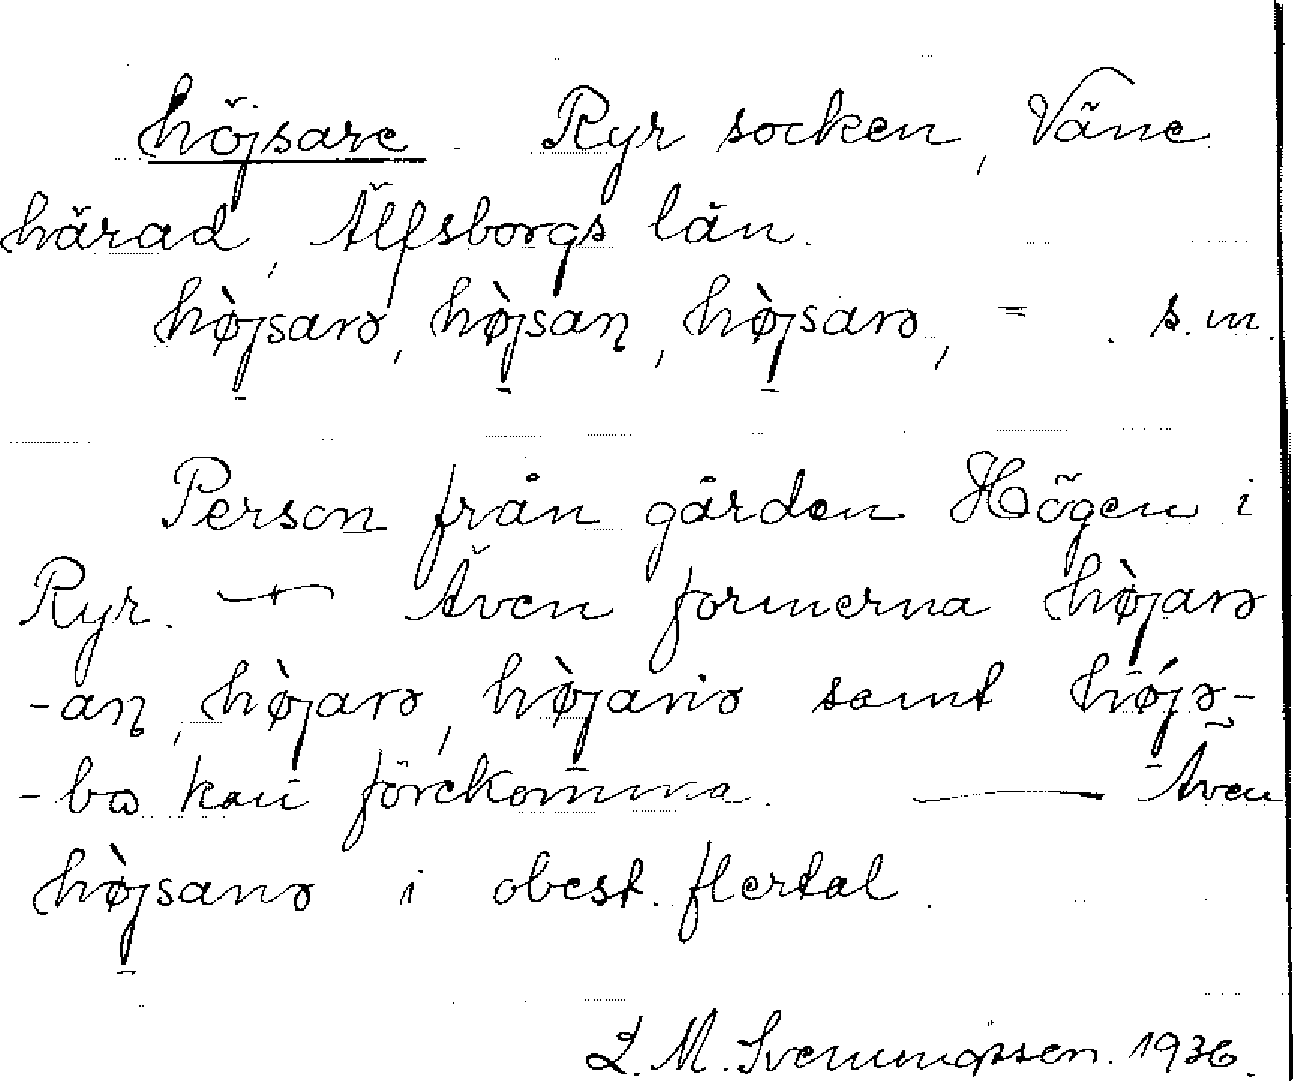 höjsare. Ryr socken, Väne
härad, Älfsborgs län.
hø̀jsarə, hø̀jsaɳ, hø̀jsarə, = . s.m.
Person från gården Högen i
Ryr. — Även formerna hø̀jarə
-aɳ, hø̀jarə, hø̀janə samt hǿjə-
-bɷ kan förekomma. — Även
hø̀jsanə i obest. flertal.
L. M. Svenungsson. 1936.